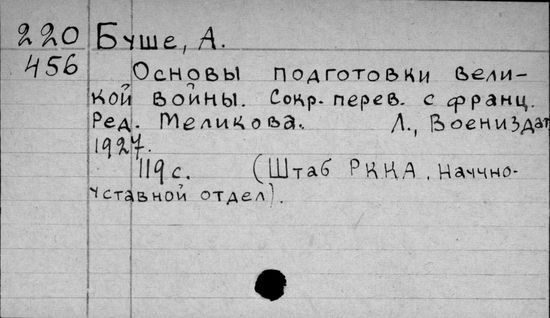 220 Буше, А.
456 Основы подготовки вели-
кой войны. Сокр. перев. с франц.
Ред. Меликова. Л., Воениздат
1927.
119 с. (Штаб РККА. Научно-
уставной отдел).